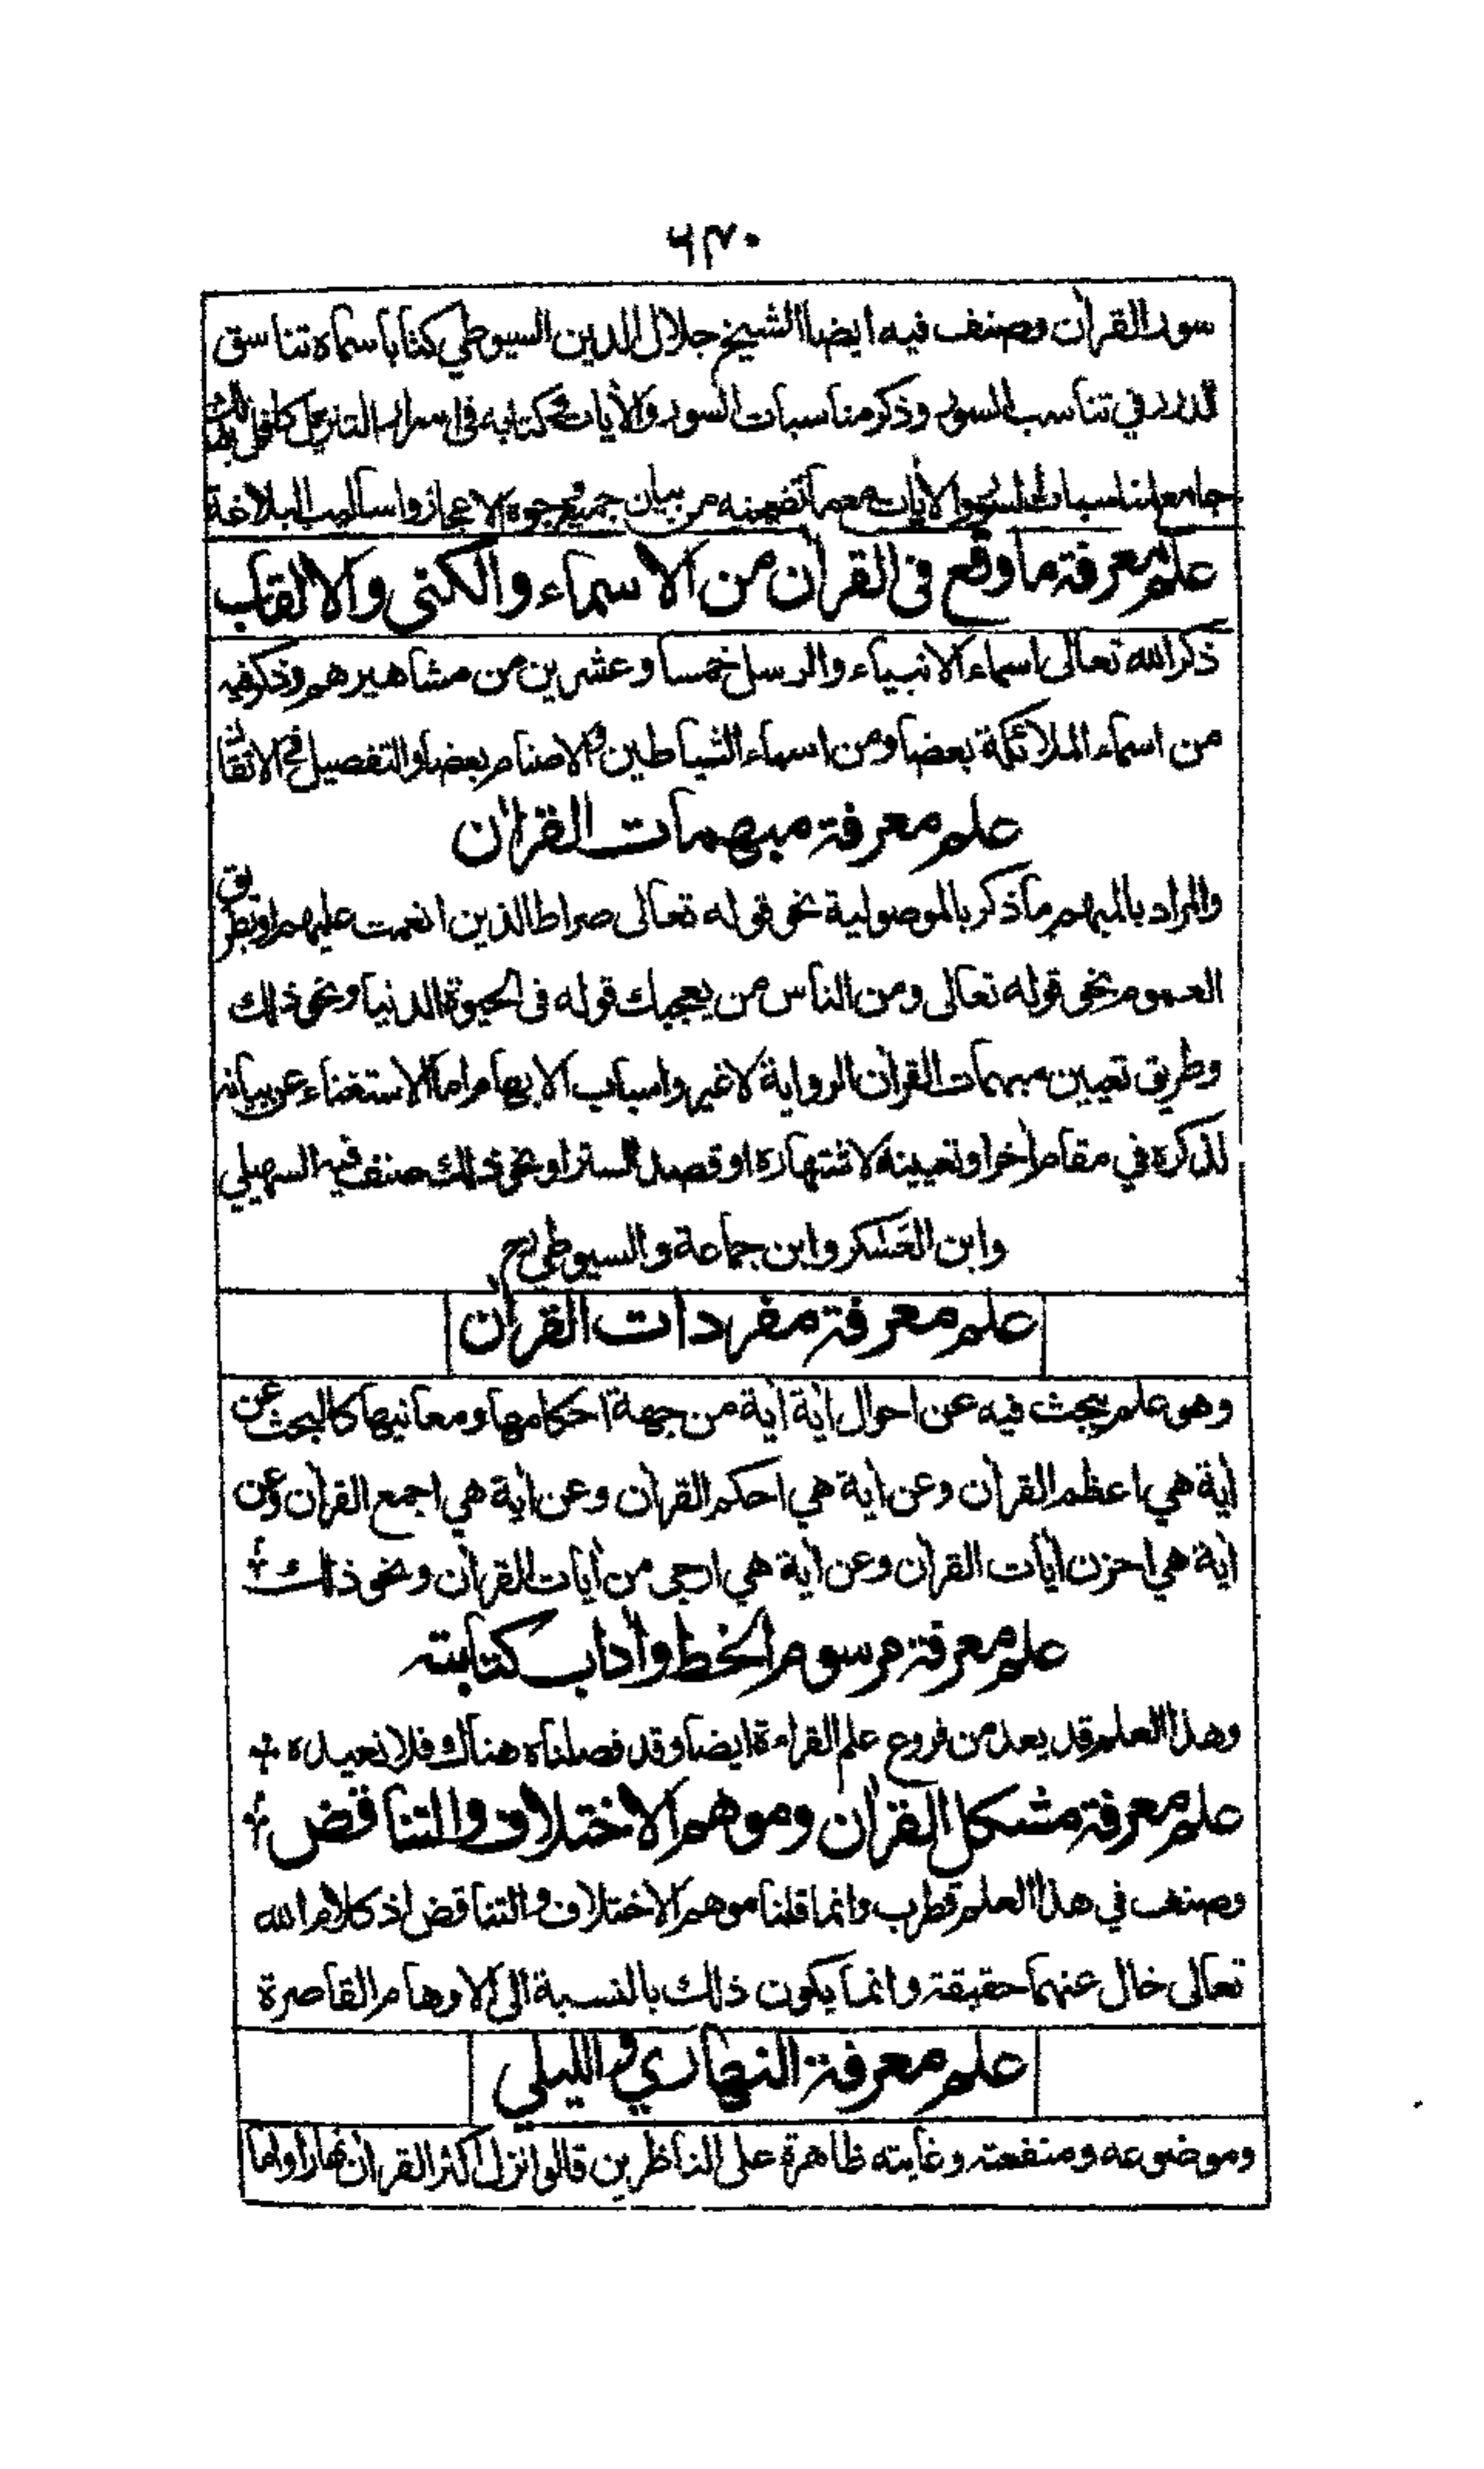 ٦٣٠
سور القرأن وصنف فيه ايضا الشيخ جلال الدين السيوطي كتابا سماه تناسق
الدرر في تناسب السور وذكر مناسبات السور والأيات في كتابه في اسرار التنزيل كافل بذلك
جامع لمناسبات السور والأيات مع ما تضمنه من بيان جميع وجوه الاعجاز واساليب البلاغة
علم معرفة ما وقع فى القرأن من الاسماء والكنى والالقاب
ذكر الله تعالى اسماء الانبياء والرسل خمسا وعشرين من مشاهيرهم وذكر فيه
من اسماء الملائكة بعضا ومن اسماء الشياطين والاصنام بعضا والتفصيل في الاتقان
علم معرفة مبهمات القرأن
والمراد بالمبهم ما ذكر بالموصولية نحو قوله تعالى صراط الذين انعمت عليهم او بطريق
العموم نحو قوله تعالى ومن الناس من يعجبك قوله فى الحيوة الدنيا ونحو ذلك
وطريق تعيين مبهمات القرأن الرواية لا غير واسباب الابهام اما الاستغناء عن بيانه
لذكره في مقام أخر او تعيينه لاشتهاره او قصد الستر او نحو ذلك صنف فيه السهيلي
وابن العَسْكر وابن جماعة والسيوطي رح
علم معرفة مفردات القرأن
وهو علم يبحث فيه عن احوال أية أية من جهة احكامها ومعانيها كالبحث عن
أية هي اعظم القرأن وعن أية هي احكم القرأن وعن أية هي اجمع القرأن وعن
أية هي احزن أيات القرأن وعن أية هي ارجى من أيات القرأن ونحو ذلك
علم معرفة مرسوم الخط وأداب كتابته
وهذا العلم قد يعد من فروع علم القراءة ايضا وقد فصلناه هناك فلا نعيده
علم معرفة مشكل القرأن وموهم الاختلاف والتناقض
وصنف في هذا العلم قطرب وانما قلنا موهم الاختلاف والتناقض اذ كلام الله
تعالى خال عنهما حقيقة وانما يكون ذلك بالنسبة الى الاوهام القاصرة
علم معرفة النهاري والليلي
وموضوعه ومنفعته وغايته ظاهرة على الناظرين قالوا نزل اكثر القرأن نهارا واما